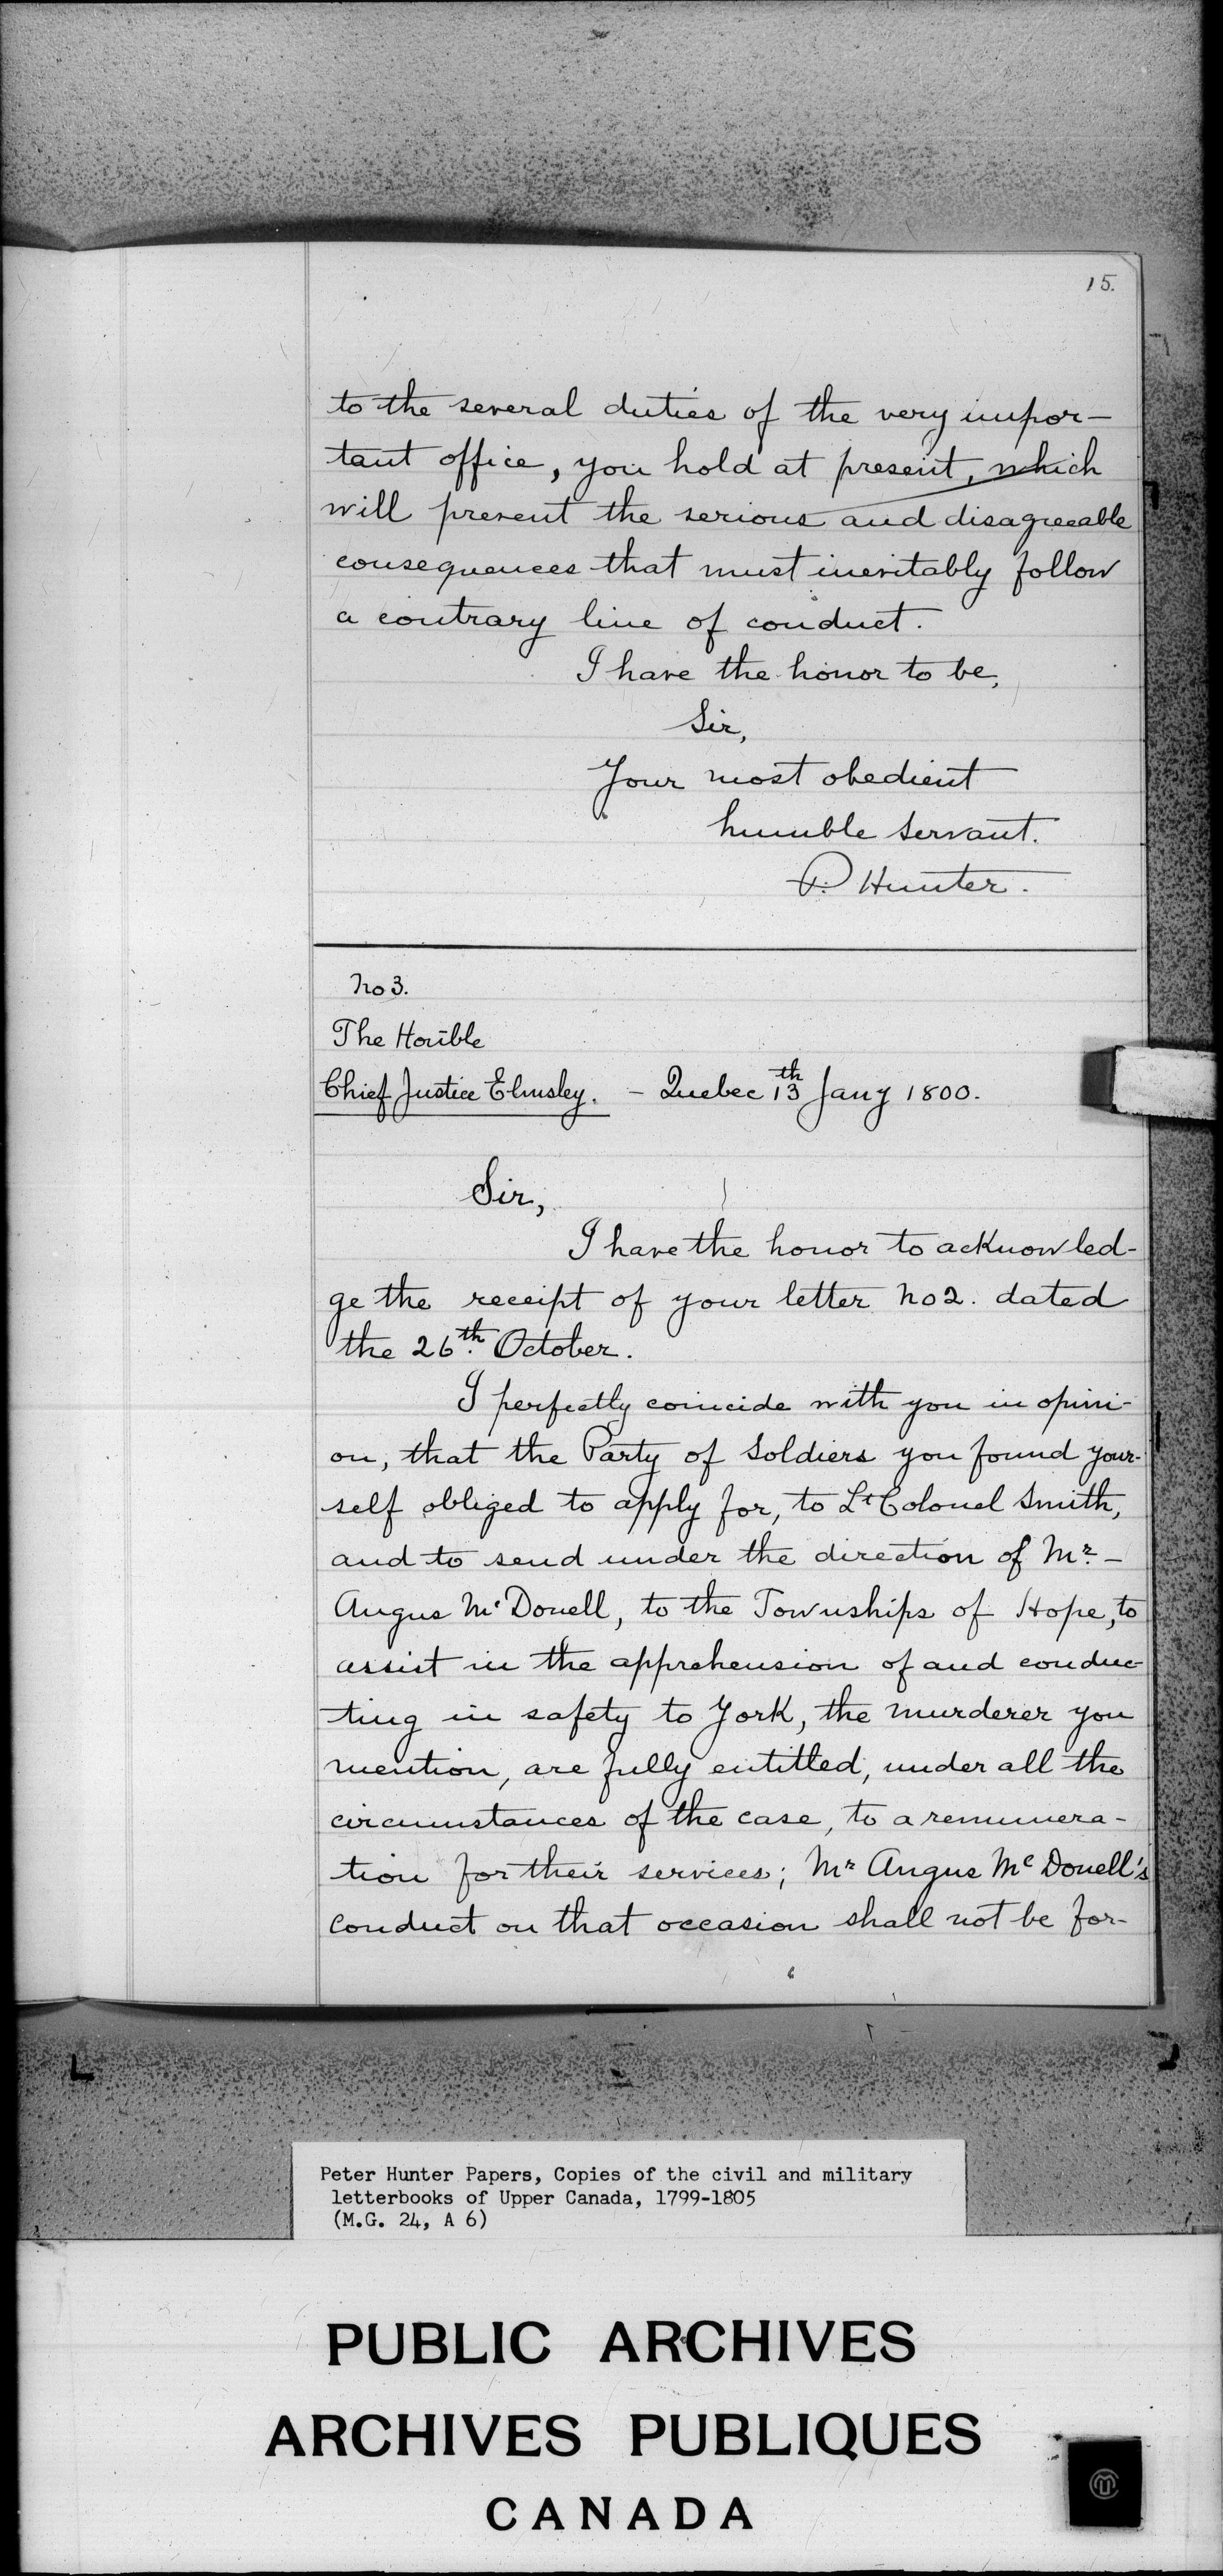 15.
to the several duties of the very impor-
tant office, you hold at present, which
will prevent the serious and disagreeable
consequences that must inevitably follow
a contrary line of conduct.
I have the honor to be,
Sir,
Your most obedient
humble servant.
P. Hunter.
No 3.
The Honble
Chief Justice Elmsley. - Quebec 13th Jany 1800.
Sir,
I have the honor to acknowled-
ge the receipt of your letter No 2. dated
the 26th. October.
I perfectly coincide with you in opini-
on, that the Party of Soldiers you found your-
self obliged to apply for, to Lt Colonel Smith,
and to send under the direction of Mr. -
Angus Mc Donell, to the Townships of Hope, to
assist in the apprehension of and conduc-
ting in safety to York, the murderer you
mention, are fully entitled, under all the
circumstances of the case, to a remunera-
tion for their services; Mr Angus Mc Donell's
conduct on that occasion shall not be for-
Peter Hunter Papers, Copies of the civil and military
letterbooks of Upper Canada, 1799-1805
(M.G. 24, A 6)
PUBLIC ARCHIVES
ARCHIVES PUBLIQUES
CANADA